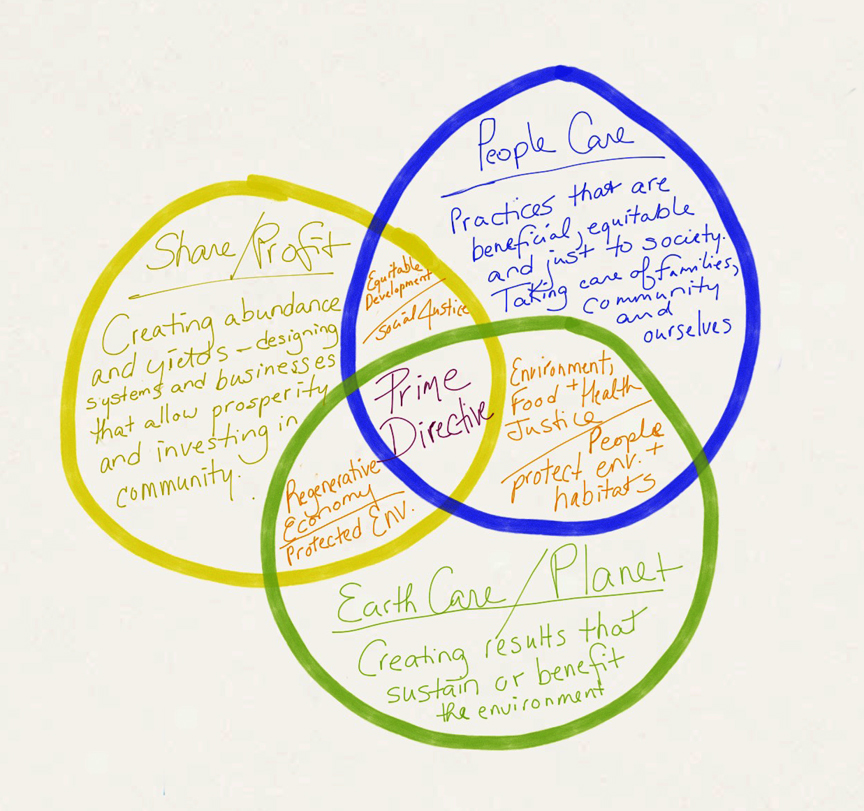 People Care
Practices that are
beneficial, equitable
and just to society.
Taking care of families,
community
and
ourselves
Share/Profit
Creating abundance
and yields – designing
systems and businesses
that allow prosperity
and investing in
community.
Equitable
Development
Social Justice
Prime
Directive
Environment,
Food + Health
Justice
People
protect env. +
habitats
Regenerative
Economy
Protected Env.
Earth Care/Planet
Creating results that
sustain or benefit
the environment